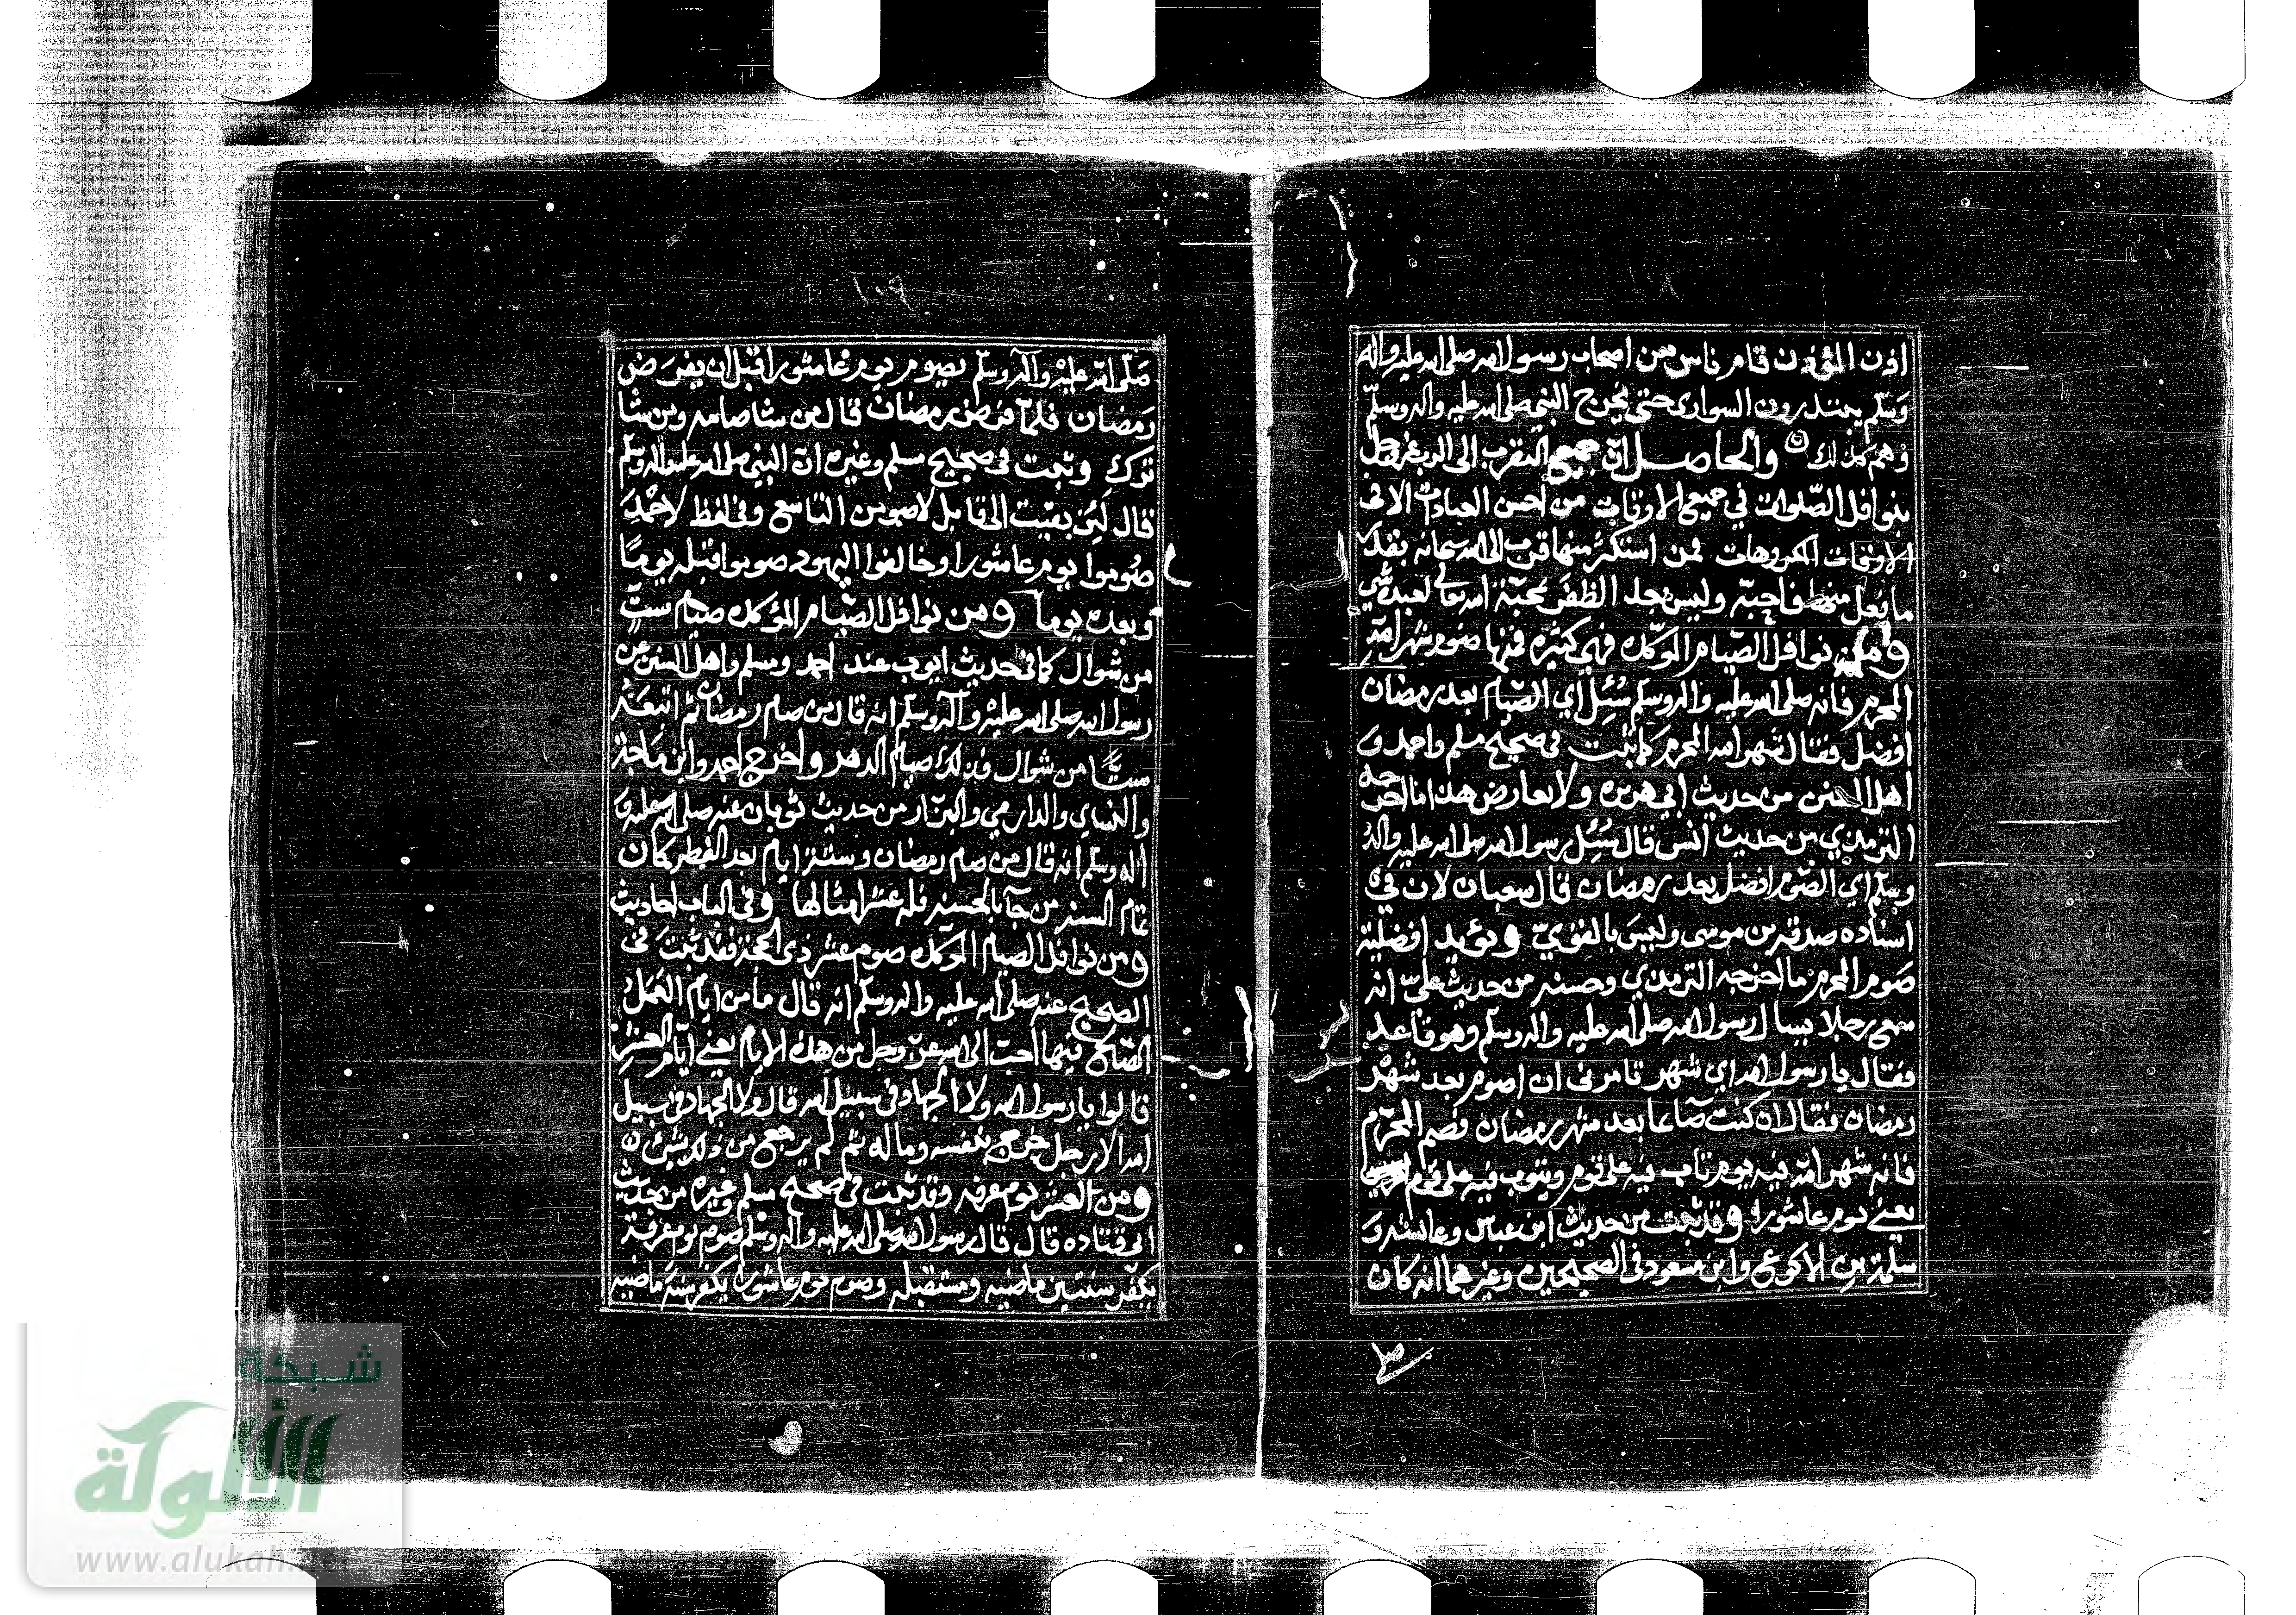 ١٠٨
اذن المؤذن قام ناس من اصحاب رسول الله صلى الله عليه واله
وسلم يبتدرون السواري حتى يخرج النبي صلى الله عليه واله وسلم
وهم كذلك والحاصل ان جميع التقرب الى الرب عز وجل
بنوافل الصلوات في جميع الاوقات من احسن العبادات الا في
الاوقات المكروهات فمن استكثر منها قرب الى الله سبحانه بقدر
ما فعل منها فاحبه وليس بعد الظفر بمحبة الله تعالى لعبده شي
ومن نوافل الصيام المؤكده فهي كثيره فمنها صوم شهر الله
المحرم فانه صلى الله عليه واله وسلم سُئِل اي الصيام بعد رمضان
افضل فقال شهر الله المحرم كما ثبت في صحيح مسلم واحمد و
اهل السنن من حديث ابي هريره ولا يعارض هذا ما اخرجه
الترمذي من حديث انس قال سُئِل رسول الله صلى الله عليه واله
وسلم اي الصوم افضل بعد رمضان قال شعبان لان في
اسناده صدقه بن موسى وليس بالقوي ويؤيد افضلية
صوم المحرم ما اخرجه الترمذي وحسنه من حديث علي انه
سمع رجلا يسال رسول الله صلى الله عليه واله وسلم وهو قاعد
فقال يا رسول الله اي شهر تامرني ان اصوم بعد شهر
رمضان فقال ان كنت صائما بعد شهر رمضان فصم المحرم
فانه شهر الله فيه يوم تاب فيه على قوم ويتوب فيه على قوم
يعني يوم عاشورا وقد ثبت من حديث ابن عباس وعائشه و
سلمة بن الاكوع وابن مسعود في الصحيحين وغيرهما انه كان
صلى
١٠٩
صلى الله عليه وآله وسلم يصوم يوم عاشورا قبل ان يفرض
رمضان فلما فرض رمضان قال من شا صامه ومن شا
تركه وثبت في صحيح مسلم وغيره ان النبي صلى الله عليه واله وسلم
قال لئن بقيت الى قابل لاصومن التاسع وفي لفظ لاحمد
صوموا يوم عاشورا وخالفوا اليهود صوموا قبله يومًا
وبعده يوما ومن نوافل الصيام المؤكده صيام ستٍّ
من شوال كما في حديث ايوب عند احمد ومسلم واهل السنن عن
رسول الله صلى الله عليه وآله وسلم انه قال من صام رمضان ثم اتبعه
ستًّا من شوال فذلك صيام الدهر واخرج احمد وابن ماجة
والنساي والدارمي والبزار من حديث ثوبان عنه صلى الله عليه و
اله وسلم انه قال من صام رمضان وستة ايام بعد الفطر كان
تمام السنة من جآ بالحسنه فله عشر امثالها وفي الباب احاديث
ومن نوافل الصيام المؤكده صوم عشر ذي الحجة فقد ثبت في
الصحيح عنه صلى الله عليه واله وسلم انه قال ما من ايام العمل
الصالح فيها احب الى الله عز وجل من هذه الايام يعني ايام العشر
قالوا يا رسول الله ولا الجهاد في سبيل الله قال ولا الجهاد في سبيل
الله الا رجل خرج بنفسه وماله ثم لم يرجع من ذلك بشيء
ومن العشر يوم عرفه وقد ثبت في صحيح مسلم وغيره من حديث
ابي قتاده قال قال رسول الله صلى الله عليه واله وسلم صوم يوم عرفة
يكفر سنتين ماضيه ومستقبله وصوم يوم عاشورا يكفر سنة ماضيه
شبكة
الألوكة